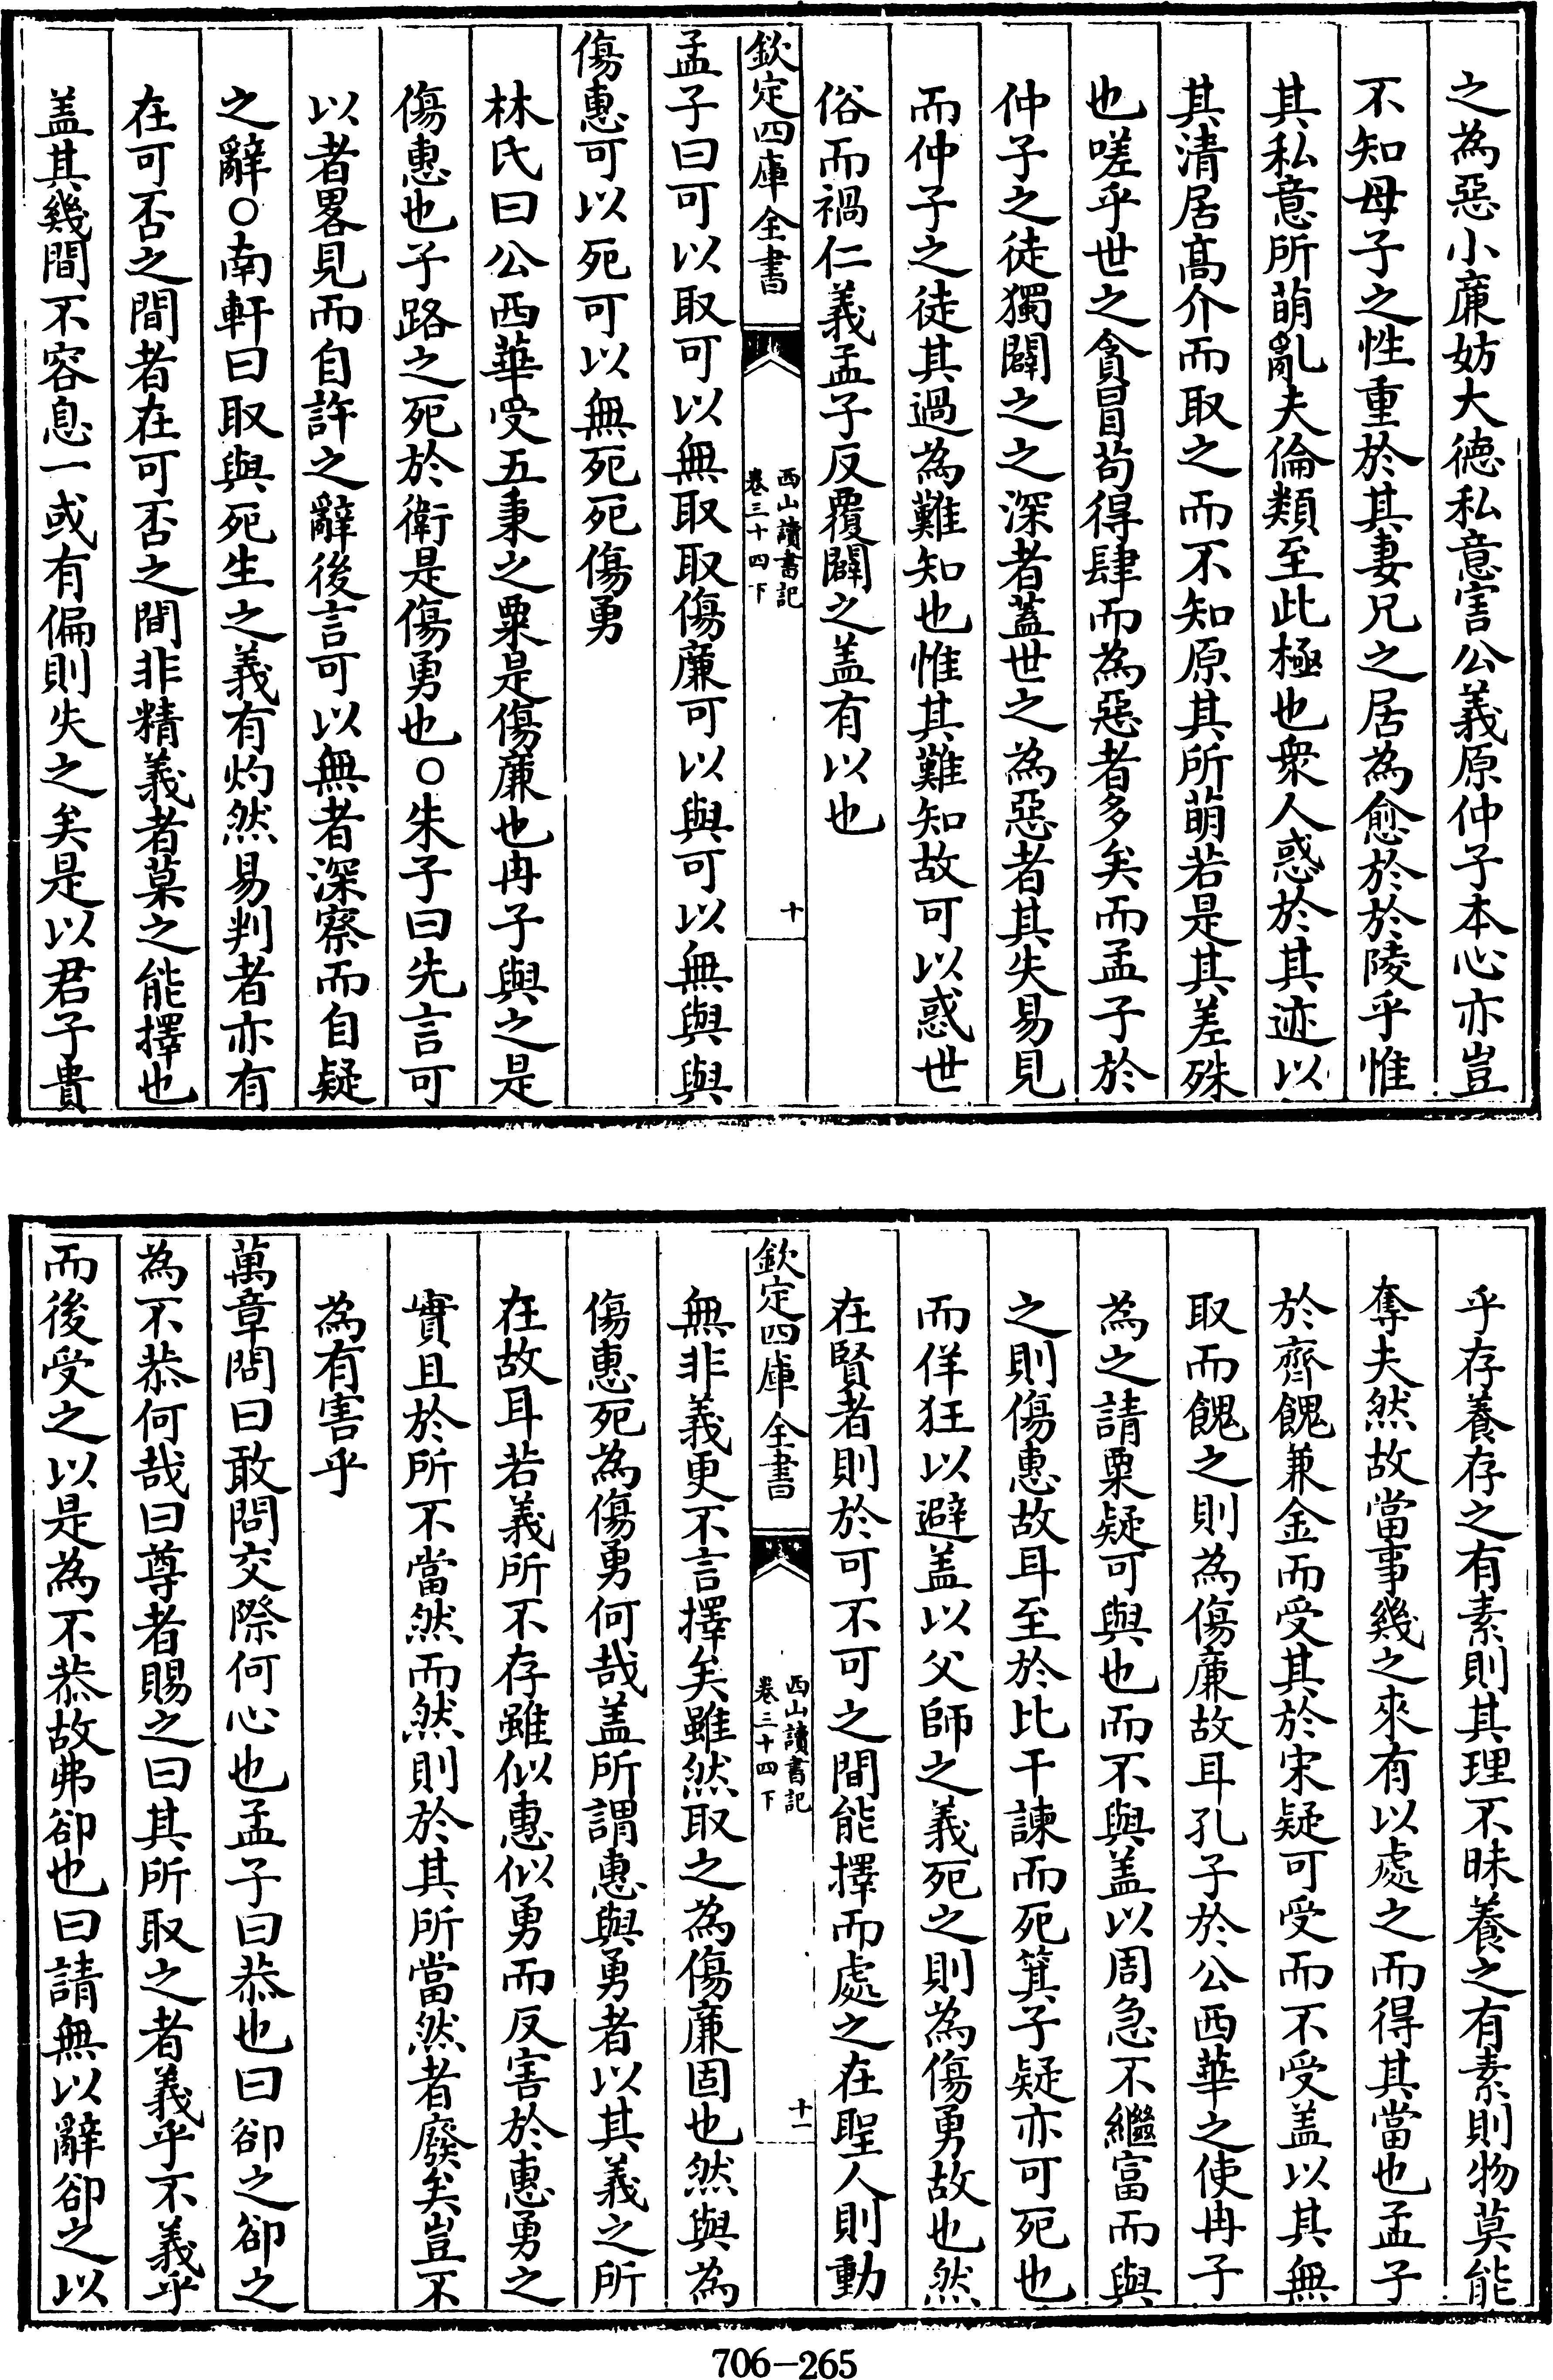 之為惡小廉妨大徳私意害公義原仲子本心亦豈
不知母子之性重於其妻兄之居為愈於於陵乎惟
其私意所萌亂夫倫類至此極也衆人惑於其迹以
其清居髙介而取之而不知原其所萌若是其差殊
也嗟乎世之貪冒苟得肆而為惡者多矣而孟子於
仲子之徒獨闢之之深者蓋世之為惡者其失易見
而仲子之徒其過為難知也惟其難知故可以惑世
俗而禍仁義孟子反覆闢之盖有以也
欽定四庫全書
西山讀書記
卷三十四下
十
孟子曰可以取可以無取取傷廉可以與可以無與與
傷惠可以死可以無死死傷勇
林氏曰公西華受五秉之粟是傷廉也冉子與之是
傷惠也子路之死於衛是傷勇也○朱子曰先言可
以者畧見而自許之辭後言可以無者深察而自疑
之辭○南軒曰取與死生之義有灼然易判者亦有
在可否之間者在可否之間非精義者莫之能擇也
盖其幾間不容息一或有偏則失之矣是以君子貴
乎存養存之有素則其理不昧養之有素則物莫能
奪夫然故當事幾之來有以處之而得其當也孟子
於齊餽兼金而受其於宋疑可受而不受盖以其無
取而餽之則為傷廉故耳孔子於公西華之使冉子
為之請粟疑可與也而不與盖以周急不繼富而與
之則傷惠故耳至於比干諫而死箕子疑亦可死也
而佯狂以避盖以父師之義死之則為傷勇故也然
在賢者則於可不可之間能擇而處之在聖人則動
欽定四庫全書
西山讀書記
卷三十四下
十一
無非義更不言擇矣雖然取之為傷廉固也然與為
傷惠死為傷勇何哉盖所謂惠與勇者以其義之所
在故耳若義所不存雖似惠似勇而反害於惠勇之
實且於所不當然而然則於其所當然者廢矣豈不
為有害乎
萬章問曰敢問交際何心也孟子曰恭也曰卻之卻之
為不恭何哉曰尊者賜之曰其所取之者義乎不義乎
而後受之以是為不恭故弗卻也曰請無以辭卻之以
706-265